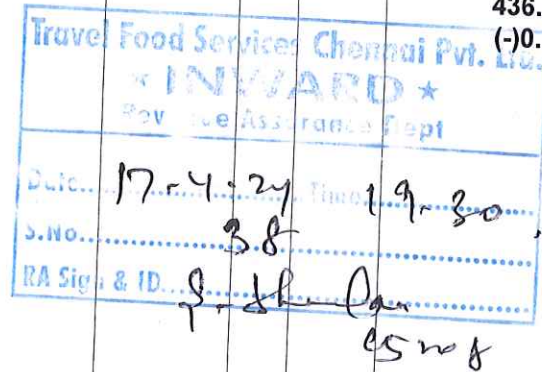 436.
(-)0.
Travel Food Services Chennai Pvt. Ltd.
★ INWARD ★
Revenue Assurance Dept
Date 17-4-24 Time 19-30
S.No. 38
RA Sign & ID